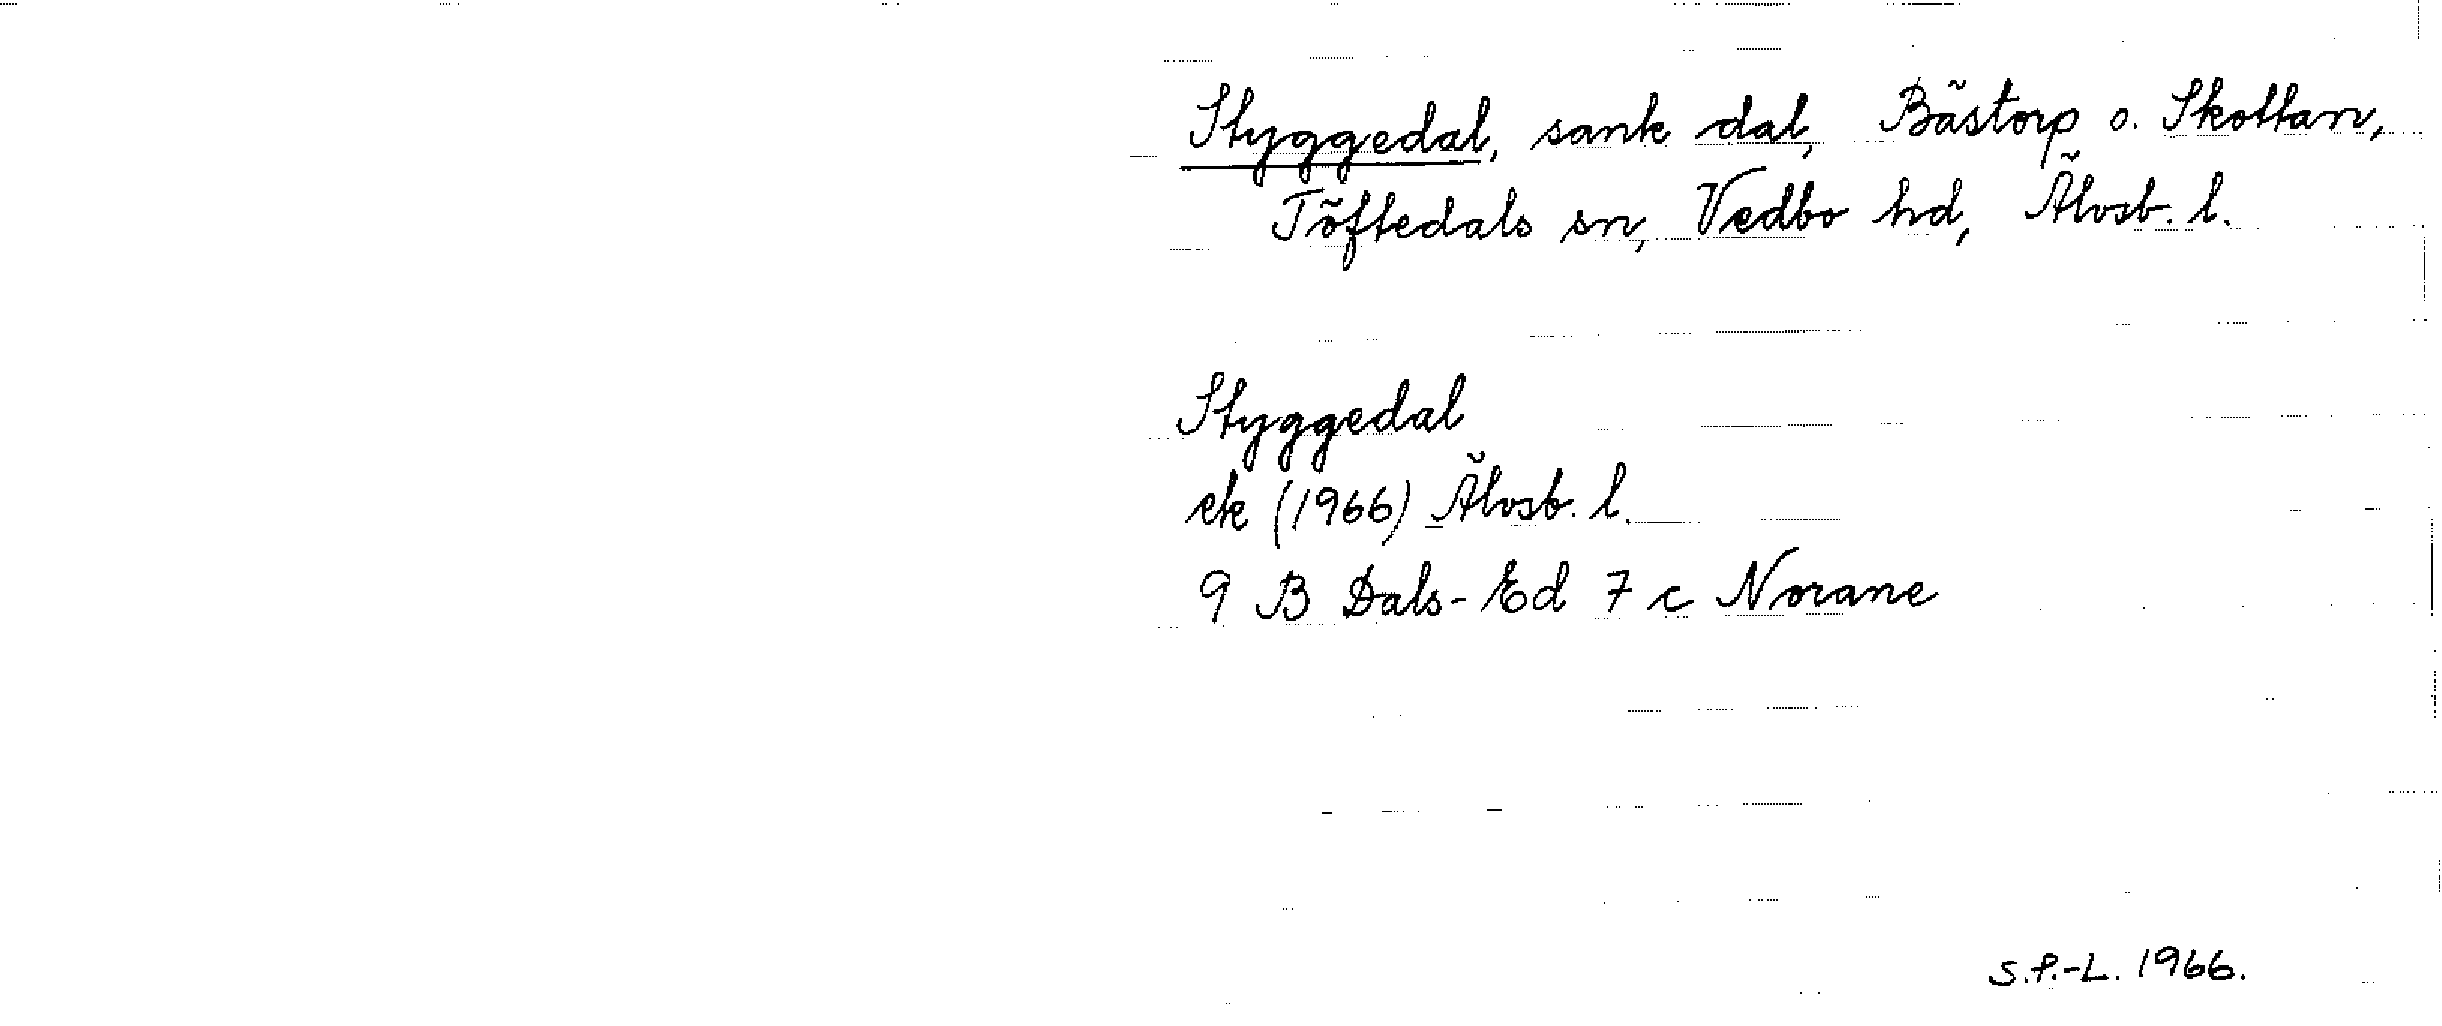 Styggedal, sank dal, Bästorp o. Skottan,
Töftedals sn, Vedbo hd, Älvsb. l.
Styggedal
ek (1966) Älvsb. l.
9 B Dals-Ed 7 c Norane
S.P.-L. 1966.